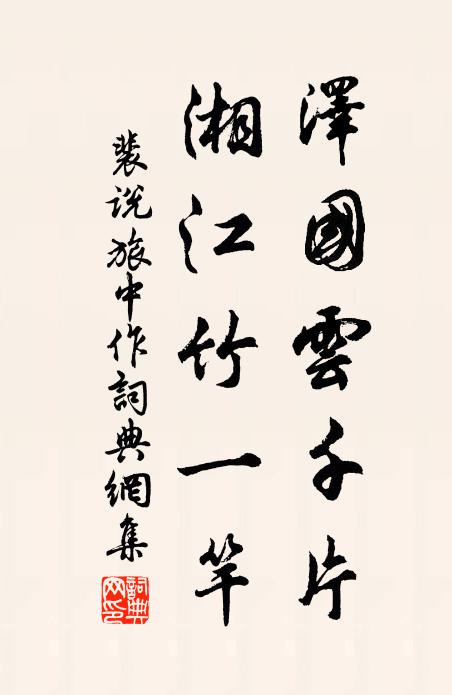 澤國雲千片
湘江竹一竿
裴说旅中作詞典網集
詞典网印